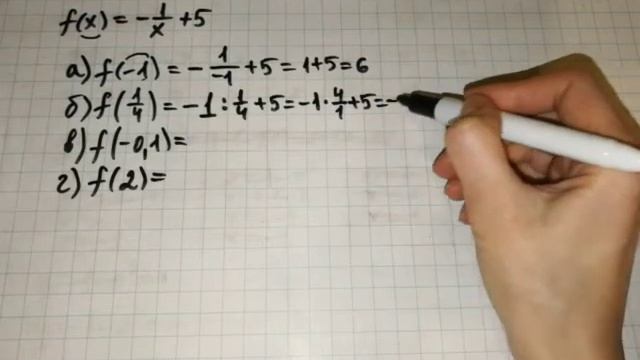 f(x) = - 1/x + 5
а) f(-1) = - 1/-1 + 5 = 1+5 = 6
б) f(1/4) = -1 : 1/4 + 5 = -1 · 4/1 + 5 = -
в) f(-0,1) =
г) f(2) =